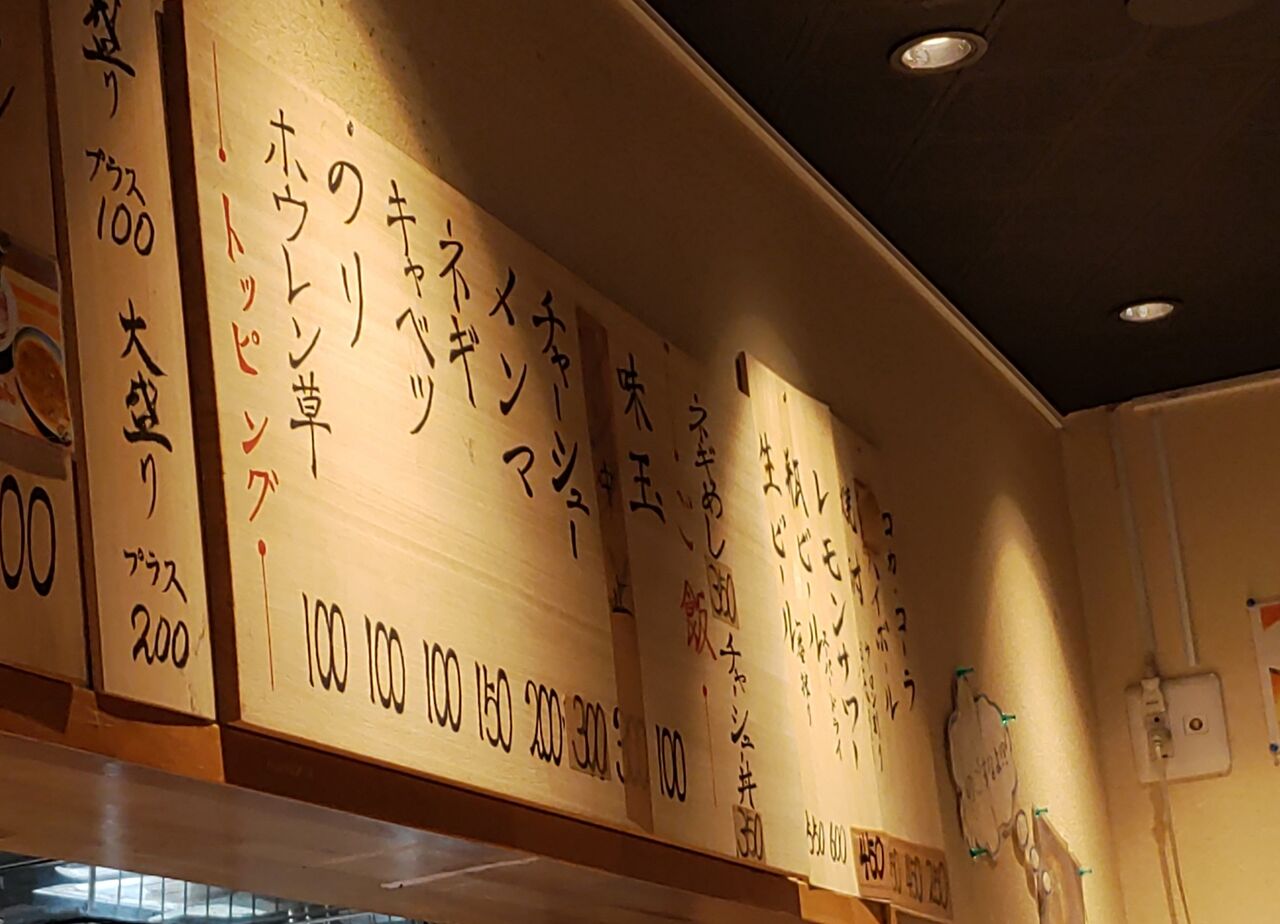 盛り
プラス
100
大盛り
プラス
200
00
トッピング
ホウレン草 100
のり 100
キャベツ 100
ネギ 150
メンマ 200
チャーシュー 300
中止
味玉 100
飯
ネギめし 350
チャーシュー丼 350
生ビール 550
瓶ビール 600
レモンサワー 450
コカ・コーラ